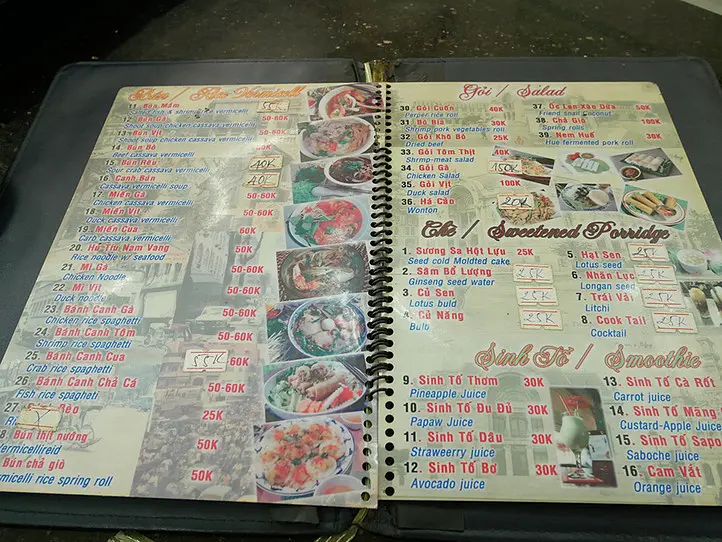 Bún / Rice Vermicell
11. Bún Mắm 55K
Salted fish & shrimp rice vermicelli
12. Bún Gà 50-60K
Shout soup chicken cassava vermicelli
13. Bún Vịt 50-60K
Shout soup duck cassava vermicelli
14. Bún Bò 50-60K
Beef cassava vermicelli
15. Bún Rêu 40K
Sour crab cassava vermicelli
16. Canh Bún 40K
Cassava vermicelli soup
17. Miến Gà 50-60K
Chicken cassava vermicelli
18. Miến Vịt 50-60K
Duck cassava vermicelli
19. Miến Cua 60K
Carb cassava vermicelli
20. Hủ Tru Nam Vang 50K
Rice noodle w/ seafood
21. Mì Gà 50-60K
Chicken Noodle
22. Mì Vịt 50-60K
Duck noodle
23. Bánh Canh Gà 50-60K
Chicken rice spaghetti
24. Bánh Canh Tôm 50-60K
Shrimp rice spaghetti
25. Bánh Canh Cua 55K
Crab rice spaghetti
26. Bánh Canh Chả Cá 50-60K
Fish rice spagheti
27 Bèo 25K
8. Bún thịt nướng 50K
Vermicellireid
Bún chả giò 50K
micelli rice spring roll
Gỏi / Salad
30. Gỏi Cuốn 40K
Perper rice roll
31. Bò Bía 30K
Shrimp pork vegetables roll
32. Gỏi Khô Bò 25K
Dried beef
33. Gỏi Tôm Thịt 40K
Shrmp-meat salad
34. Gỏi Gà 150K
Chicken Salad
35. Gỏi Vịt 100K
Duck salad
36. Há Cảo 20K
Wonton
37. Ốc Len Xào Dừa 50K
Friend snail Coconut
38. Chả Giò 100K
Spring rolls
39. Nem Huế 30K
Hue fermented pork roll
Chè / Sweetened Porridge
1. Sương Sa Hột Lựu 25K
Seed cold Moldted cake
2. Sâm Bổ Lượng 25K
Ginseng seed water
3. Củ Sen 25K
Lotus buld
4. Củ Năng 25K
Bulb
5. Hạt Sen 25K
Lotus-seed
6. Nhãn Lục 25K
Longan seed
7. Trái Vải 25K
Litchi
8. Cook Tail 25K
Cocktail
Sinh Tố / Smoothie
9. Sinh Tố Thơm 30K
Pineapple Juice
10. Sinh Tố Đu Đủ 30K
Papaw Juice
11. Sinh Tố Dâu 30K
Straweerry juice
12. Sinh Tố Bơ 30K
Avocado juice
13. Sinh Tố Cà Rốt
Carrot juice
14. Sinh Tố Mãng
Custard-Apple Juice
15. Sinh Tố Sapo
Saboche juice
16. Cam Vắt
Orange juice